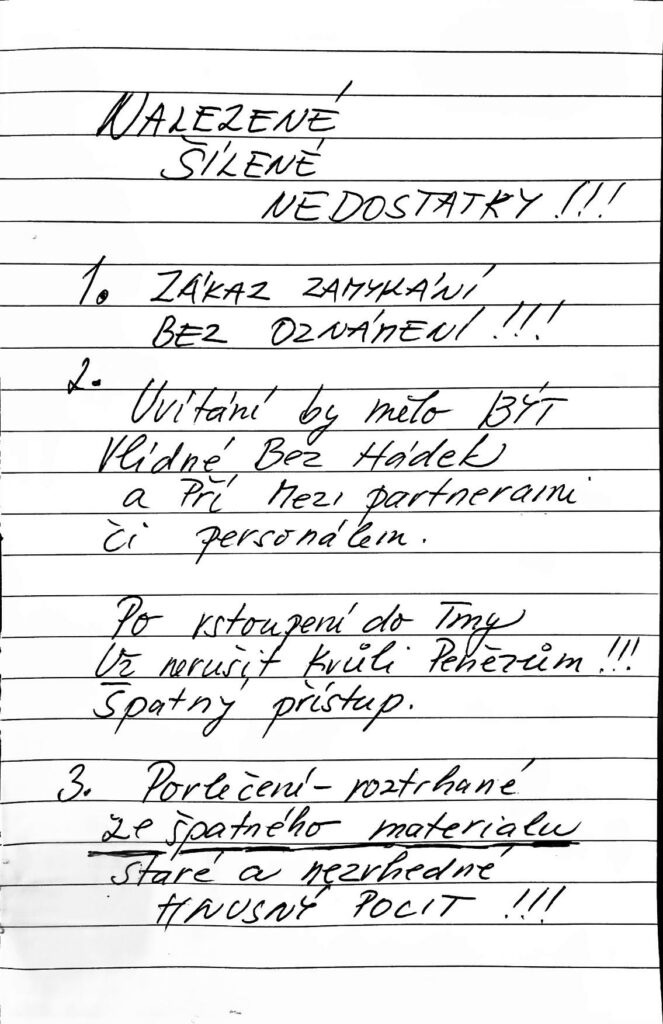 NALEZENÉ
ŠÍLENÉ
NEDOSTATKY!!!
1. ZÁKAZ ZAMYKÁNÍ
BEZ OZNÁMENÍ!!!
2.
Uvítání by mělo BÝT
Vlídné Bez Hádek
a Pří Mezi partnerami
či personálem.
Po vstoupení do Tmy
Už nerušit Kvůli Penězům!!!
Špatný přístup.
3. Povlečení – roztrhané
ze špatného materialu
staré a nezvhedné
HNUSNÝ POCIT !!!